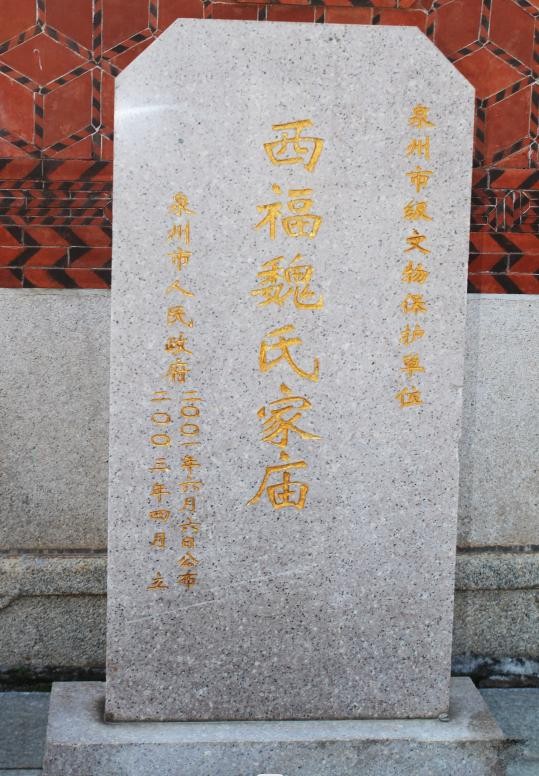 泉州市级文物保护单位
西福魏氏家庙
泉州市人民政府
二〇〇一年六月六日公布
二〇〇三年四月 立